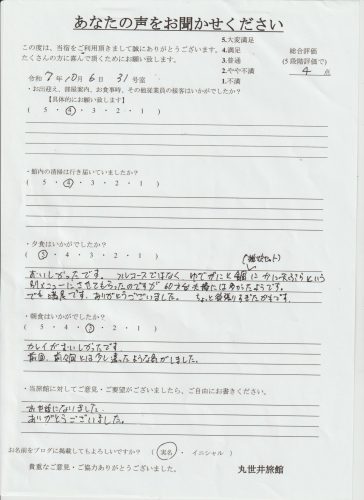 あなたの声をお聞かせください
この度は、当宿をご利用頂きまして誠にありがとうございます。
たくさんの方に喜んで頂くためにお願い致します。
5.大変満足
4.満足
3.普通
2.やや不満
1.不満
総合評価
(5段階評価で)
4 点
令和 7年 10月 6日 31号室
・お出迎え、部屋案内、お食事時、その他従業員の接客はいかがでしたか?
【具体的にお願い致します】
( 5 ・ 4 ・ 3 ・ 2 ・ 1 )
・館内の清掃は行き届いていましたか?
( 5 ・ 4 ・ 3 ・ 2 ・ 1 )
・夕食はいかがでしたか?
( 5 ・ 4 ・ 3 ・ 2 ・ 1 )
おいしかったです。 フルコースではなく、ゆでがにと鍋に かに天ぷらという
別メニューにさせてもらったのですが 60才台夫婦には多かったようです。
でも満足です。ありがとうございました。
・朝食はいかがでしたか?
( 5 ・ 4 ・ 3 ・ 2 ・ 1 )
カレイがおいしかったです
前回、前々回とは少し違ったような気がしました。
・当旅館に対してご意見・ご要望がございましたら、ご自由にお書きください。
お世話になりました
ありがとうございました。
お名前をブログに掲載してもよろしいですか? ( 実名 ・ イニシャル )
貴重なご意見・ご協力ありがとうございました。
丸世井旅館